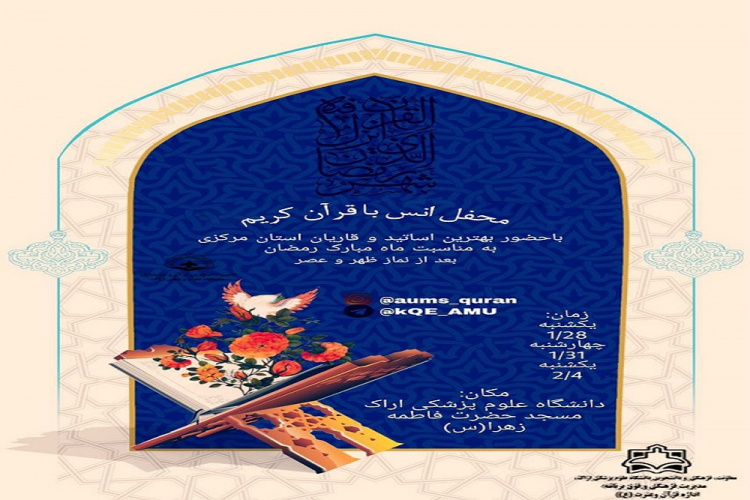 شهر رمضان
الذی
انزل فیه
القرآن
محفل انس با قرآن کریم
باحضور بهترین اساتید و قاریان استان مرکزی
به مناسبت ماه مبارک رمضان
بعد از نماز ظهر و عصر
@aums_quran
@kQE_AMU
زمان:
یکشنبه
1/28
چهارشنبه
1/31
یکشنبه
2/4
مکان:
دانشگاه علوم پزشکی اراک
مسجد حضرت فاطمه
زهرا(س)
معاونت فرهنگی و دانشجویی دانشگاه علوم پزشکی اراک
مدیریت فرهنگی و فوق برنامه
اداره قرآن و عترت (ع)